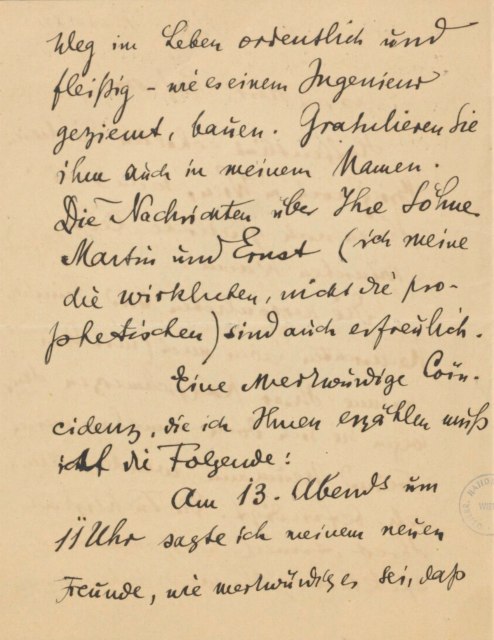 Weg im Leben ordentlich und
fleißig – wie es einem Ingenieur
geziemt, bauen. Gratulieren Sie
ihm auch in meinem Namen.
Die Nachrichten über Ihre Söhne
Martin und Ernst (ich meine
die wirklichen, nicht die pro-
phetischen) sind auch erfreulich.
Eine merkwürdige Coin-
cidenz, die ich Ihnen erzählen muß
ist die Folgende:
Am 13. Abends um
11 Uhr sagte ich meinem neuen
Freunde, wie merkwürdig es sei, daß